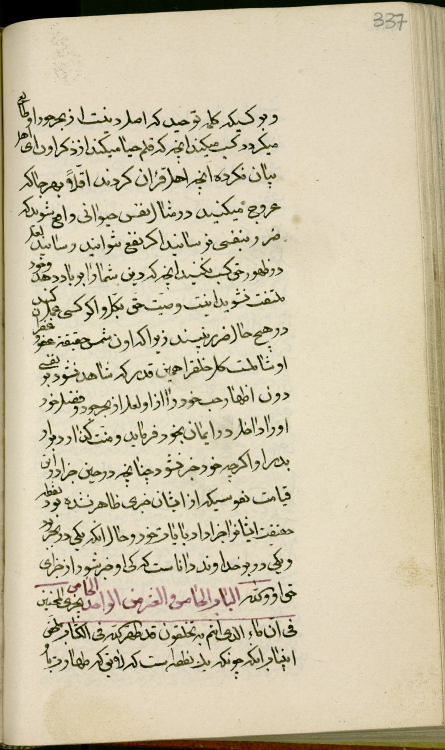 337
و بر کسیکه کلمه توحید که اصل دینست از بحر جود او طالع
میگردد کسب میکنند آنچه که قلم حیا میکند از ذکر آن اهل
بیان نکرده آنچه اهل قرآن کردند اقلا بهر جا که
عروج میکنید در مثال نفس حیوانی واقع نشوید که
ضرر بنفسی نرسانید اگر نفع نتوانید رسانید لعل
در ظهور حق کسب نکنید آنچه که دین شما را بر باد دهد و خود
ملتفت نشوید اینست وصیت حق بکل و اگر کسی عمل کند
در هیچ حال ضرر نبیند زیرا که اون شمس حقیقت عفو
او شامل است کل خلق را همین قدر که مشاهده نشود بر نفسی
دون اظهار حب خود را از او لعل از بحر جود و فضل خود
او را داخل در ایمان بخود فرماید و منت گذارد بر او
بدین او اگر چه خود خبر نشود چنانچه در حین خزاد در این
قیامت نفوسیکه از ایشان حزنی ظاهر نشده بود نقطه
حقیقت ایشانرا جزا داد بایات خود و حال آنکه یکی در بحر بود
و یکی در بر خداوند داناست که کی او خبر شود از جزای
حق او و کتبه الباب الخامس و العشر من الواحد الخامس
فی ان ماء الذی انتم به تخلقون قد طهر الله فی الکتاب ملخص
این باب آنکه چونکه یک نطفه است که لایق که طهارت باو